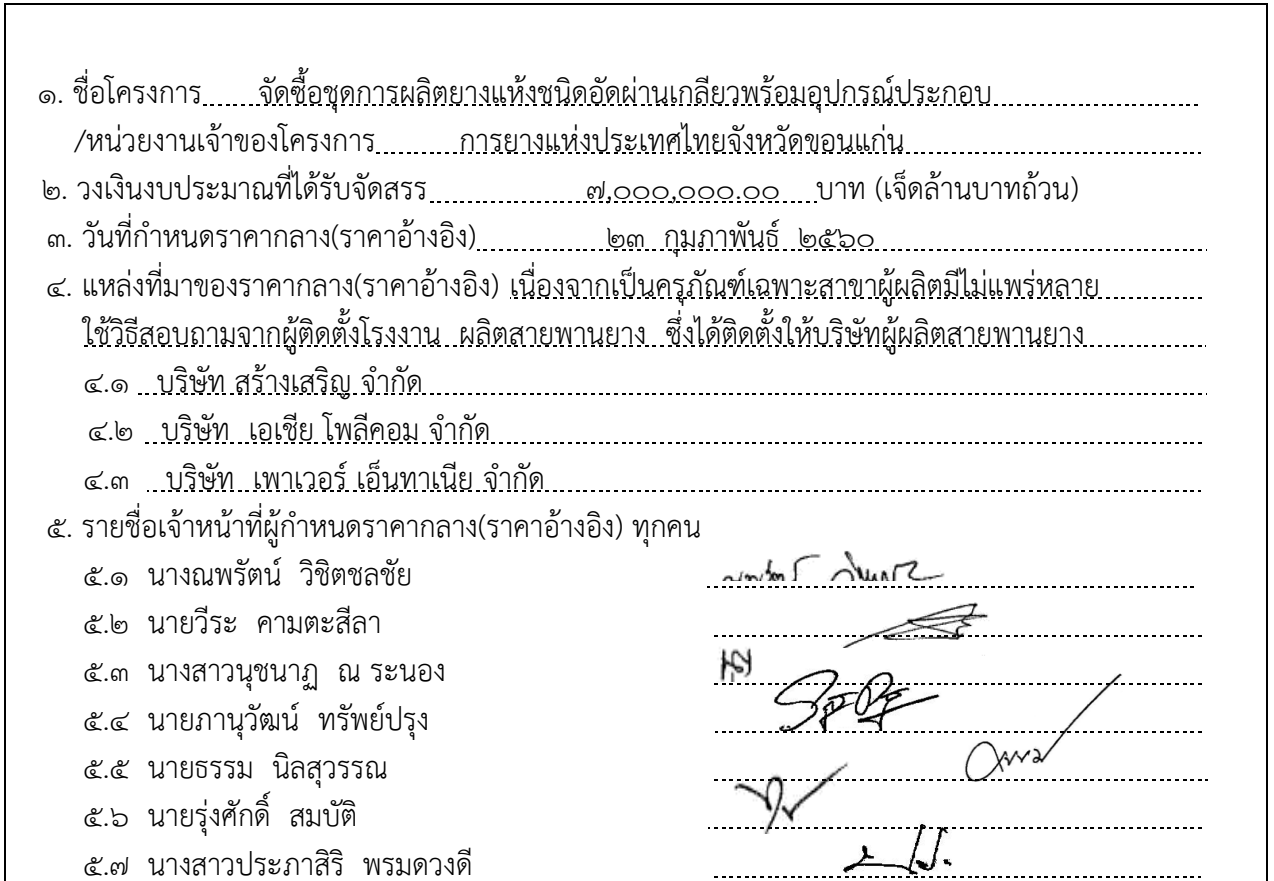 ๑. ชื่อโครงการ จัดซื้อชุดการผลิตยางแห้งชนิดอัดผ่านเกลียวพร้อมอุปกรณ์ประกอบ
/หน่วยงานเจ้าของโครงการ การยางแห่งประเทศไทยจังหวัดขอนแก่น
๒. วงเงินงบประมาณที่ได้รับจัดสรร ๗,๐๐๐,๐๐๐.๐๐ บาท (เจ็ดล้านบาทถ้วน)
๓. วันที่กำหนดราคากลาง(ราคาอ้างอิง) ๒๓ กุมภาพันธ์ ๒๕๖๐
๔. แหล่งที่มาของราคากลาง(ราคาอ้างอิง) เนื่องจากเป็นครุภัณฑ์เฉพาะสาขาผู้ผลิตมีไม่แพร่หลาย
ใช้วิธีสอบถามจากผู้ติดตั้งโรงงาน ผลิตสายพานยาง ซึ่งได้ติดตั้งให้บริษัทผู้ผลิตสายพานยาง
๔.๑ บริษัท สร้างเสริญ จำกัด
๔.๒ บริษัท เอเชีย โพลีคอม จำกัด
๔.๓ บริษัท เพาเวอร์ เอ็นทาเนีย จำกัด
๕. รายชื่อเจ้าหน้าที่ผู้กำหนดราคากลาง(ราคาอ้างอิง) ทุกคน
๕.๑ นางณพรัตน์ วิชิตชลชัย
๕.๒ นายวีระ คามตะสีลา
๕.๓ นางสาวนุชนาฏ ณ ระนอง
๕.๔ นายภานุวัฒน์ ทรัพย์ปรุง
๕.๕ นายธรรม นิลสุวรรณ
๕.๖ นายรุ่งศักดิ์ สมบัติ
๕.๗ นางสาวประภาสิริ พรมดวงดี